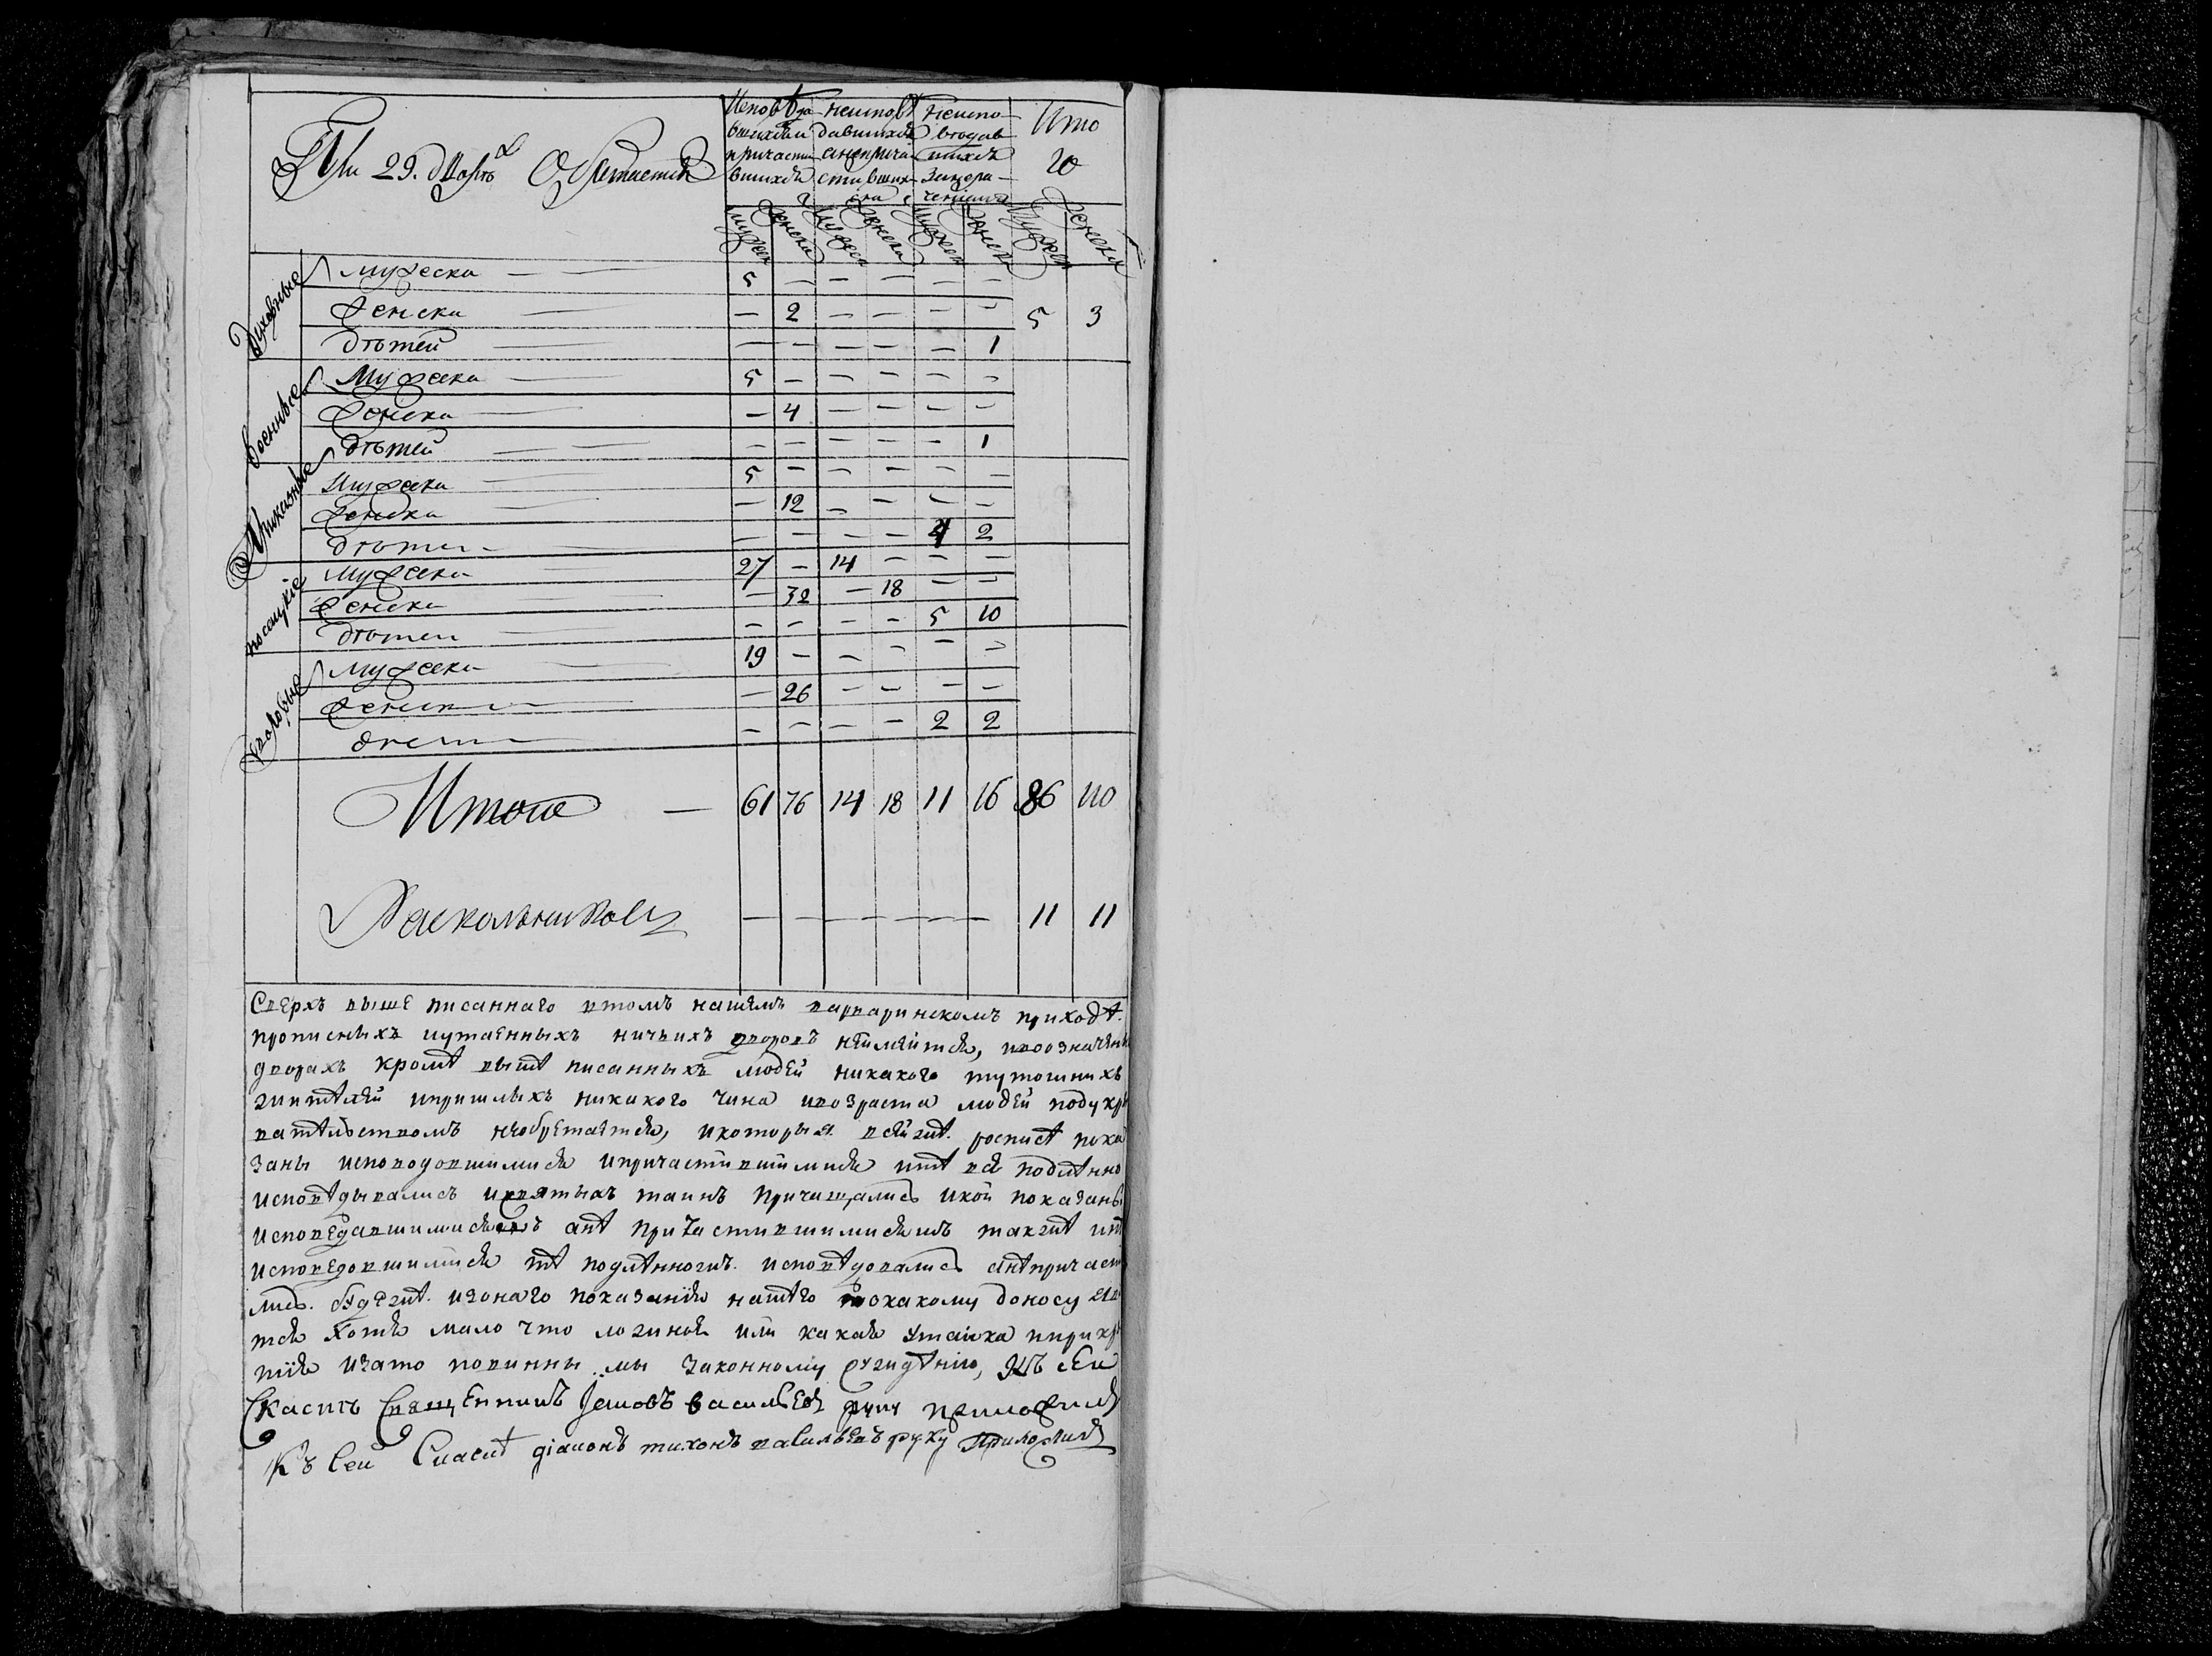 При 29. дворѣхъ Обѣтаетсѧ
Исповѣда
вшихсѧ и
причасти
вшихсѧ
неисповѣ
давшихсѧ
а не прича
стивших
сѧ
неиспо
вѣдав
шихсѧ
Ито
го
мужеск женска мужеск женска мужеск женска мужеск женска
Духовные
мужеска — 5 — — — — —
женска — — 2 — — — — 5 3
дѣтей — — — — — — 1
военные
Мужеска — 5 — — — — —
женска — — 4 — — — —
дѣтей — — — — — — 1
Приказные
Мужеска — 5 — — — — —
женска — — 12 — — — —
дѣтей — — — — — 4 2
посацкіе
мужеска — 27 — 14 — — —
женска — — 32 — 18 — —
дѣтей — — — — — 5 10
дворовые
мужеска — 19 — — — — —
женска — — 26 — — — —
дѣтей — — — — — 2 2
Итого — 61 76 14 18 11 16 86 110
Раскольниковъ — — — — — — 11 11
Сверхъ выше писаннаго втомъ нашемъ варваринскомъ приходѣ
прописныхъ иутаенныхъ ничьихъ дворовъ неимеитсѧ, ивоозначен
дворахъ кромѣ выше писанныхъ людей никакого тутошнихъ
жителей ипришлыхъ никакого чина ивозраста людей подукры
вателствомъ необретаетсѧ, икоторыя всей же росписѣ пока
заны исповодовшимисѧ ипричастившимисѧ итѣ всѣ подлѣнно
исповѣдывались исвятыхъ таинъ причищались икои показаны
исповедавшимисѧ анѣ причастившимисѧ такжѣ инѣ
исповедовшимисѧ тѣ подлѣнножъ исповѣдовались анѣпричаст
лись. Буде же изонаго показаниѧ нашего покакому доносу яви
тсѧ хотѧ мало что ложное или какаѧ утайка иприкры
тіѧ изато повинны мы законному сужденію, Къ сеи
Скаскѣ Священникъ Іаковъ васильевъ руку приложилъ
Къ сеи Скаскѣ діаконъ тихонъ васильевъ руку приложилъ